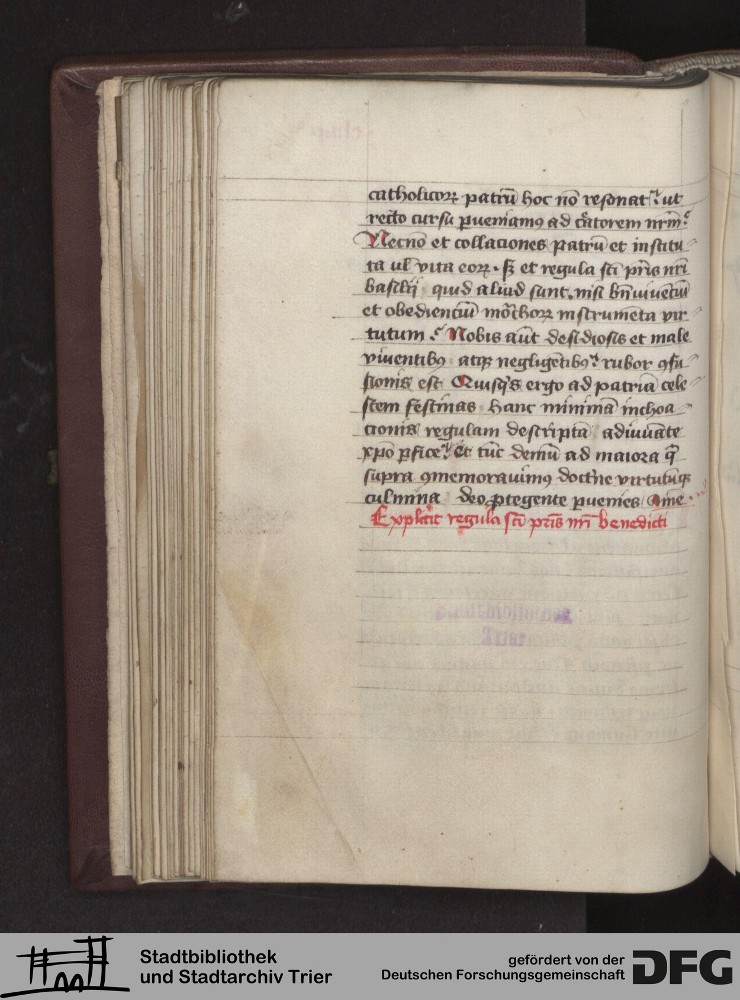 catholicoꝝ patrū hoc nō resonat ut
recto cursu ꝑueniamꝰ ad c̾atorem nr̄m
Necnō et collaciones patrū et institu
ta ul̓ vita eoꝝ . sꝫ et regula sc̄i pr̄is nr̄i
basilij quid aliud sunt nisi bn̄viuenciū
et obedienciū mōchoꝝ instrumēta vir
tutum Nobis aūt desidiosis et male
viuentibꝰ atqꝫ negligētibꝰ rubor ꝯfu
sionis est Quisq̄s ergo ad patriā cele
stem festinas hanc minimā inchoa
cionis regulam descriptā adiuuāte
xp̄o ꝑfice Et tūc demū ad maiora q̄
supra ꝯmemorauimꝰ doct̾ne virtutūqꝫ
culmina deo ꝓtegente ꝑuenies Ame
Explicit regula sc̄i pr̄is nr̄i benedicti
Stadtbibliothek
Trier
Stadtbibliothek
und Stadtarchiv Trier
gefördert von der
Deutschen Forschungsgemeinschaft
DFG